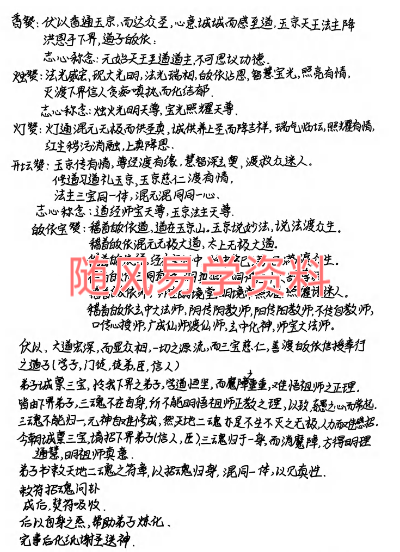 香赞：伏以香通玉京，而达众圣，心意诚诚而感至道，玉京天王法主降
洪恩于下界，道子皈依：
志心称念：元始天王至道道主，不可思议功德。
烛赞：法光盛宏，烛火光明，法光瑞相，皈依沾恩，智慧宝光，照亮有情，
灭渡下界信人贪爱嗔执而化结郁．
志心称念：烛火光明天尊，宝光照耀天尊．
灯赞：灯通混元无极而供至真，诚供养上圣而降吉祥，瑞气临坛，照耀有情，
红尘秽污消融，上真降恩．
开坛赞：玉京传有情，尊经渡有缘，慧智深玄奥，渡救众迷人。
修道习道礼玉京，玉京慈仁渡有情，
法主三宝同一体，混元混同同一心．
志心称念：道经师宝天尊，玉京法主天尊．
皈依宝赞：稽首皈依道，道在玉京山．玉京说妙法，说法渡众生．
稽首皈依混元无极大道，太上无极大道．
稽首皈依
稽首皈依玄中大法师，阴传阴教师，阳传阳教师，不传自教师，
口传心授师，广成仙师渡仙师，玄中化神，师宝大法师．
伏以，大道宏深，而显众相，一切之源流，而三宝慈仁，善渡皈依信授奉行
之道子（学子，门徒，徒弟，臣，信人）
弟子诚蒙三宝，怜我下界之弟子，学道迷里，而魔障重重，难悟祖师之正理．
皆由下界弟子，三魂不在自身，所不能明悟祖师正教之理，以致
三魂不能归一，元神自难修成，然天地二魂亦是不生不灭之元
今朝诚望三宝，搞招下界弟子（信人，臣）三魂归于一身，而消魔障，方得明理
通慧，明祖师真意．
弟子书敕天地二魂之符章，以招魂归身，混同一体，以见真性．
敕符招魂问卦
成后，焚符吸收．
后以自身之炁，帮助弟子炼化．
完事后化纸谢圣送神．
随风易学资料